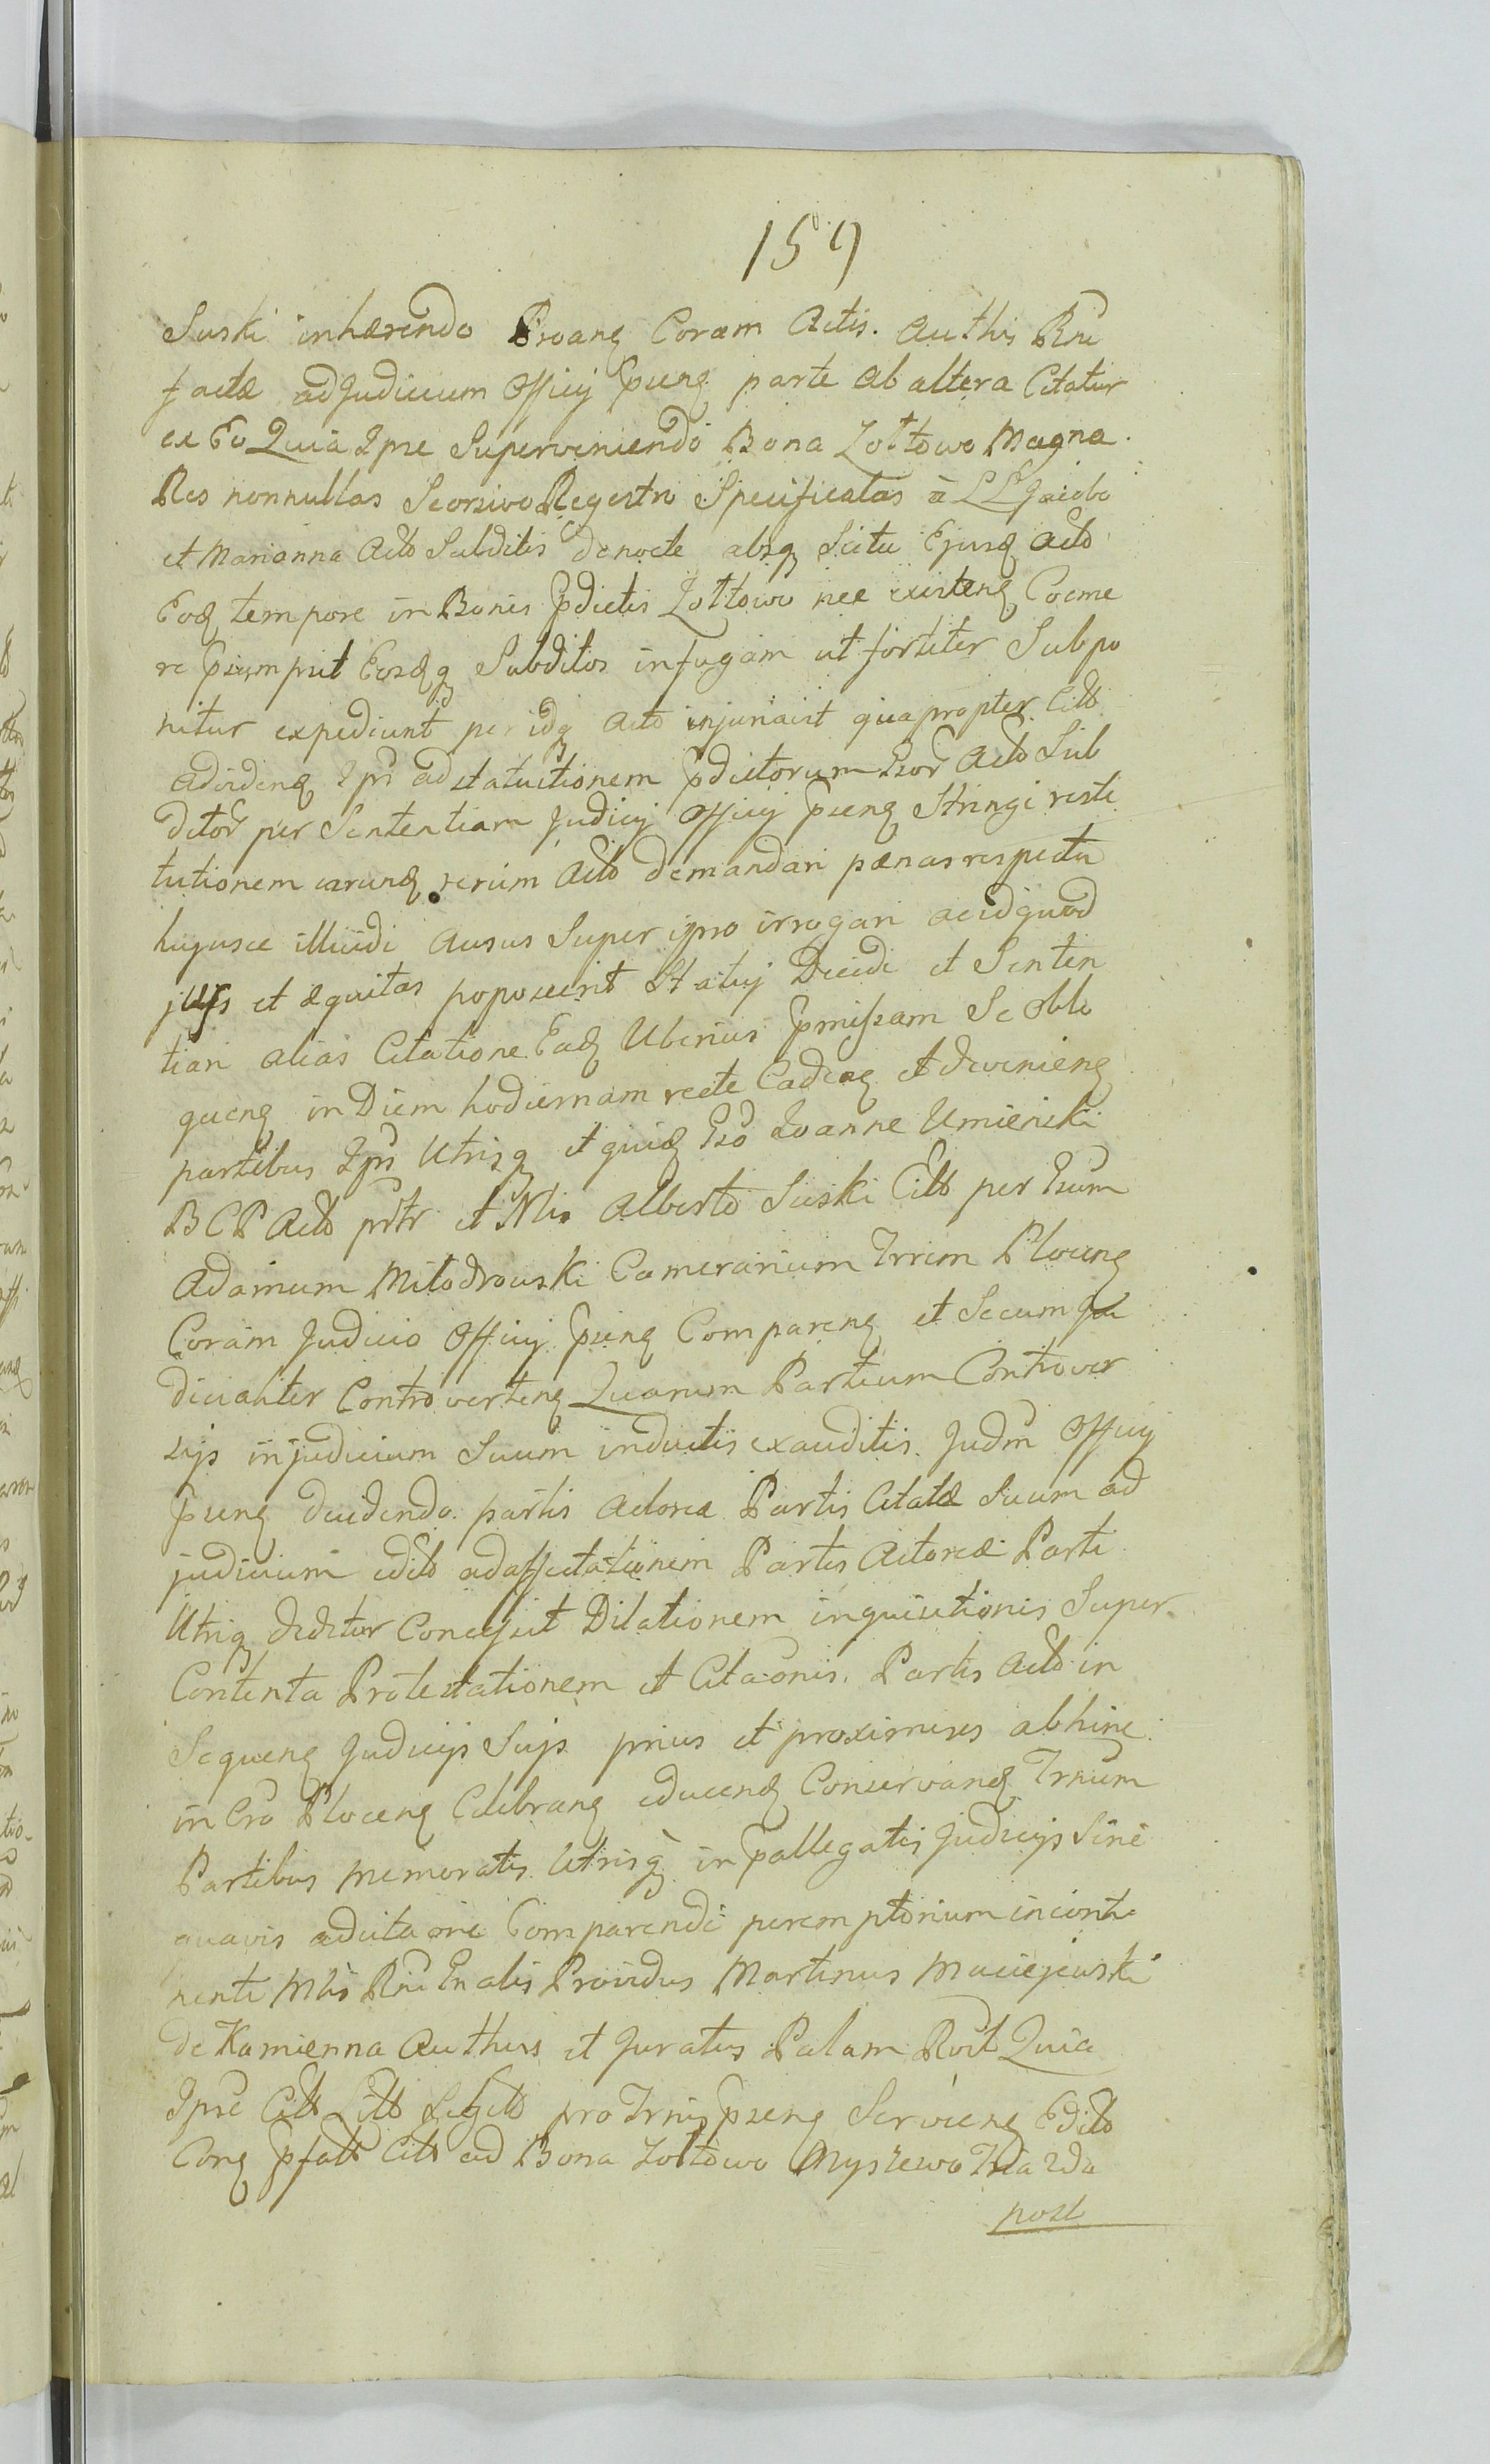 159
Suski inhærendo Coram Actis. Authis Rni
factæ ad Judicium Officij pseng parte Ab altera Citatur
ex Eo Quia Ipse Superveniendo Bona Zołtowo Magna
Res nonnullas Seorsivo Regestro Specificatas à LL Jacobo
et Marianna Acto Subditis de nocte absq Scitu Ejusd Acto
Eod tempore in Bonis pdictis Zołtowo nec existeng Coeme
re psumpsit Eosdq Subditos in fugam ut fortiter Subpo
nitur expediunt per idq Acto injuriavit quapropter Citt
ad videnq Ipsi ad statuitionem pdictorum Acto Sub
ditor per Sententiam Judicij Officij pseng Stringi resti
tutionem earund rerum Acto demandari pænas respectu
hujusce illicidi Ausus Super ipso irrogari ac id quod
jus et æquitas poposcerit Statuj Decidi et Senten
tiari alias Citatione Ead Uberius pmissam Se Obllo
queng in Diem hodiernam recte Cadeng et devenieng
partibus Ipsis Utrisq et quid Gso Ioanne Umieński
B C P Acto prtr et Nbis Alberto Suski Citto per Gsum
Adamum Miłodrowski Camerarium Trrem Ploceng
Coram Judicio Officij pseng Compareng et Secum Ju
dicialiter Controverteng Quarum Partium Controver
sijs in judicium Suum inductis exauditis. Judm Officij
pseng decidendo partis Actoreæ Partis Citatæ Suum ad
judicium edito ad affectationem Partis Actoreæ Parti
Utriq Concessit Dilationem inquisitionis Super
Contenta Protestationem et Citaonis. Partis Acto in
Sequeng Judicijs Suis prius et proximius abhinc
in Cro Ploceng Celebrang educend Conservand Trnum
Partibus memoratis Utrisq in pallegatis Judicijs Sine
quavis aducitaone Comparendi peremptorium inconti
nenti Mlis Rni Gnalis Providus Martinus Maciejewski
de Kamienna Authus et Juratus Palam Rcit Quia
Ipse Citt Litt pro Trnis pseng Servieng Edito
Cong pfatt Citt ad Bona Zołtowo Myszewo Fria 2da
post